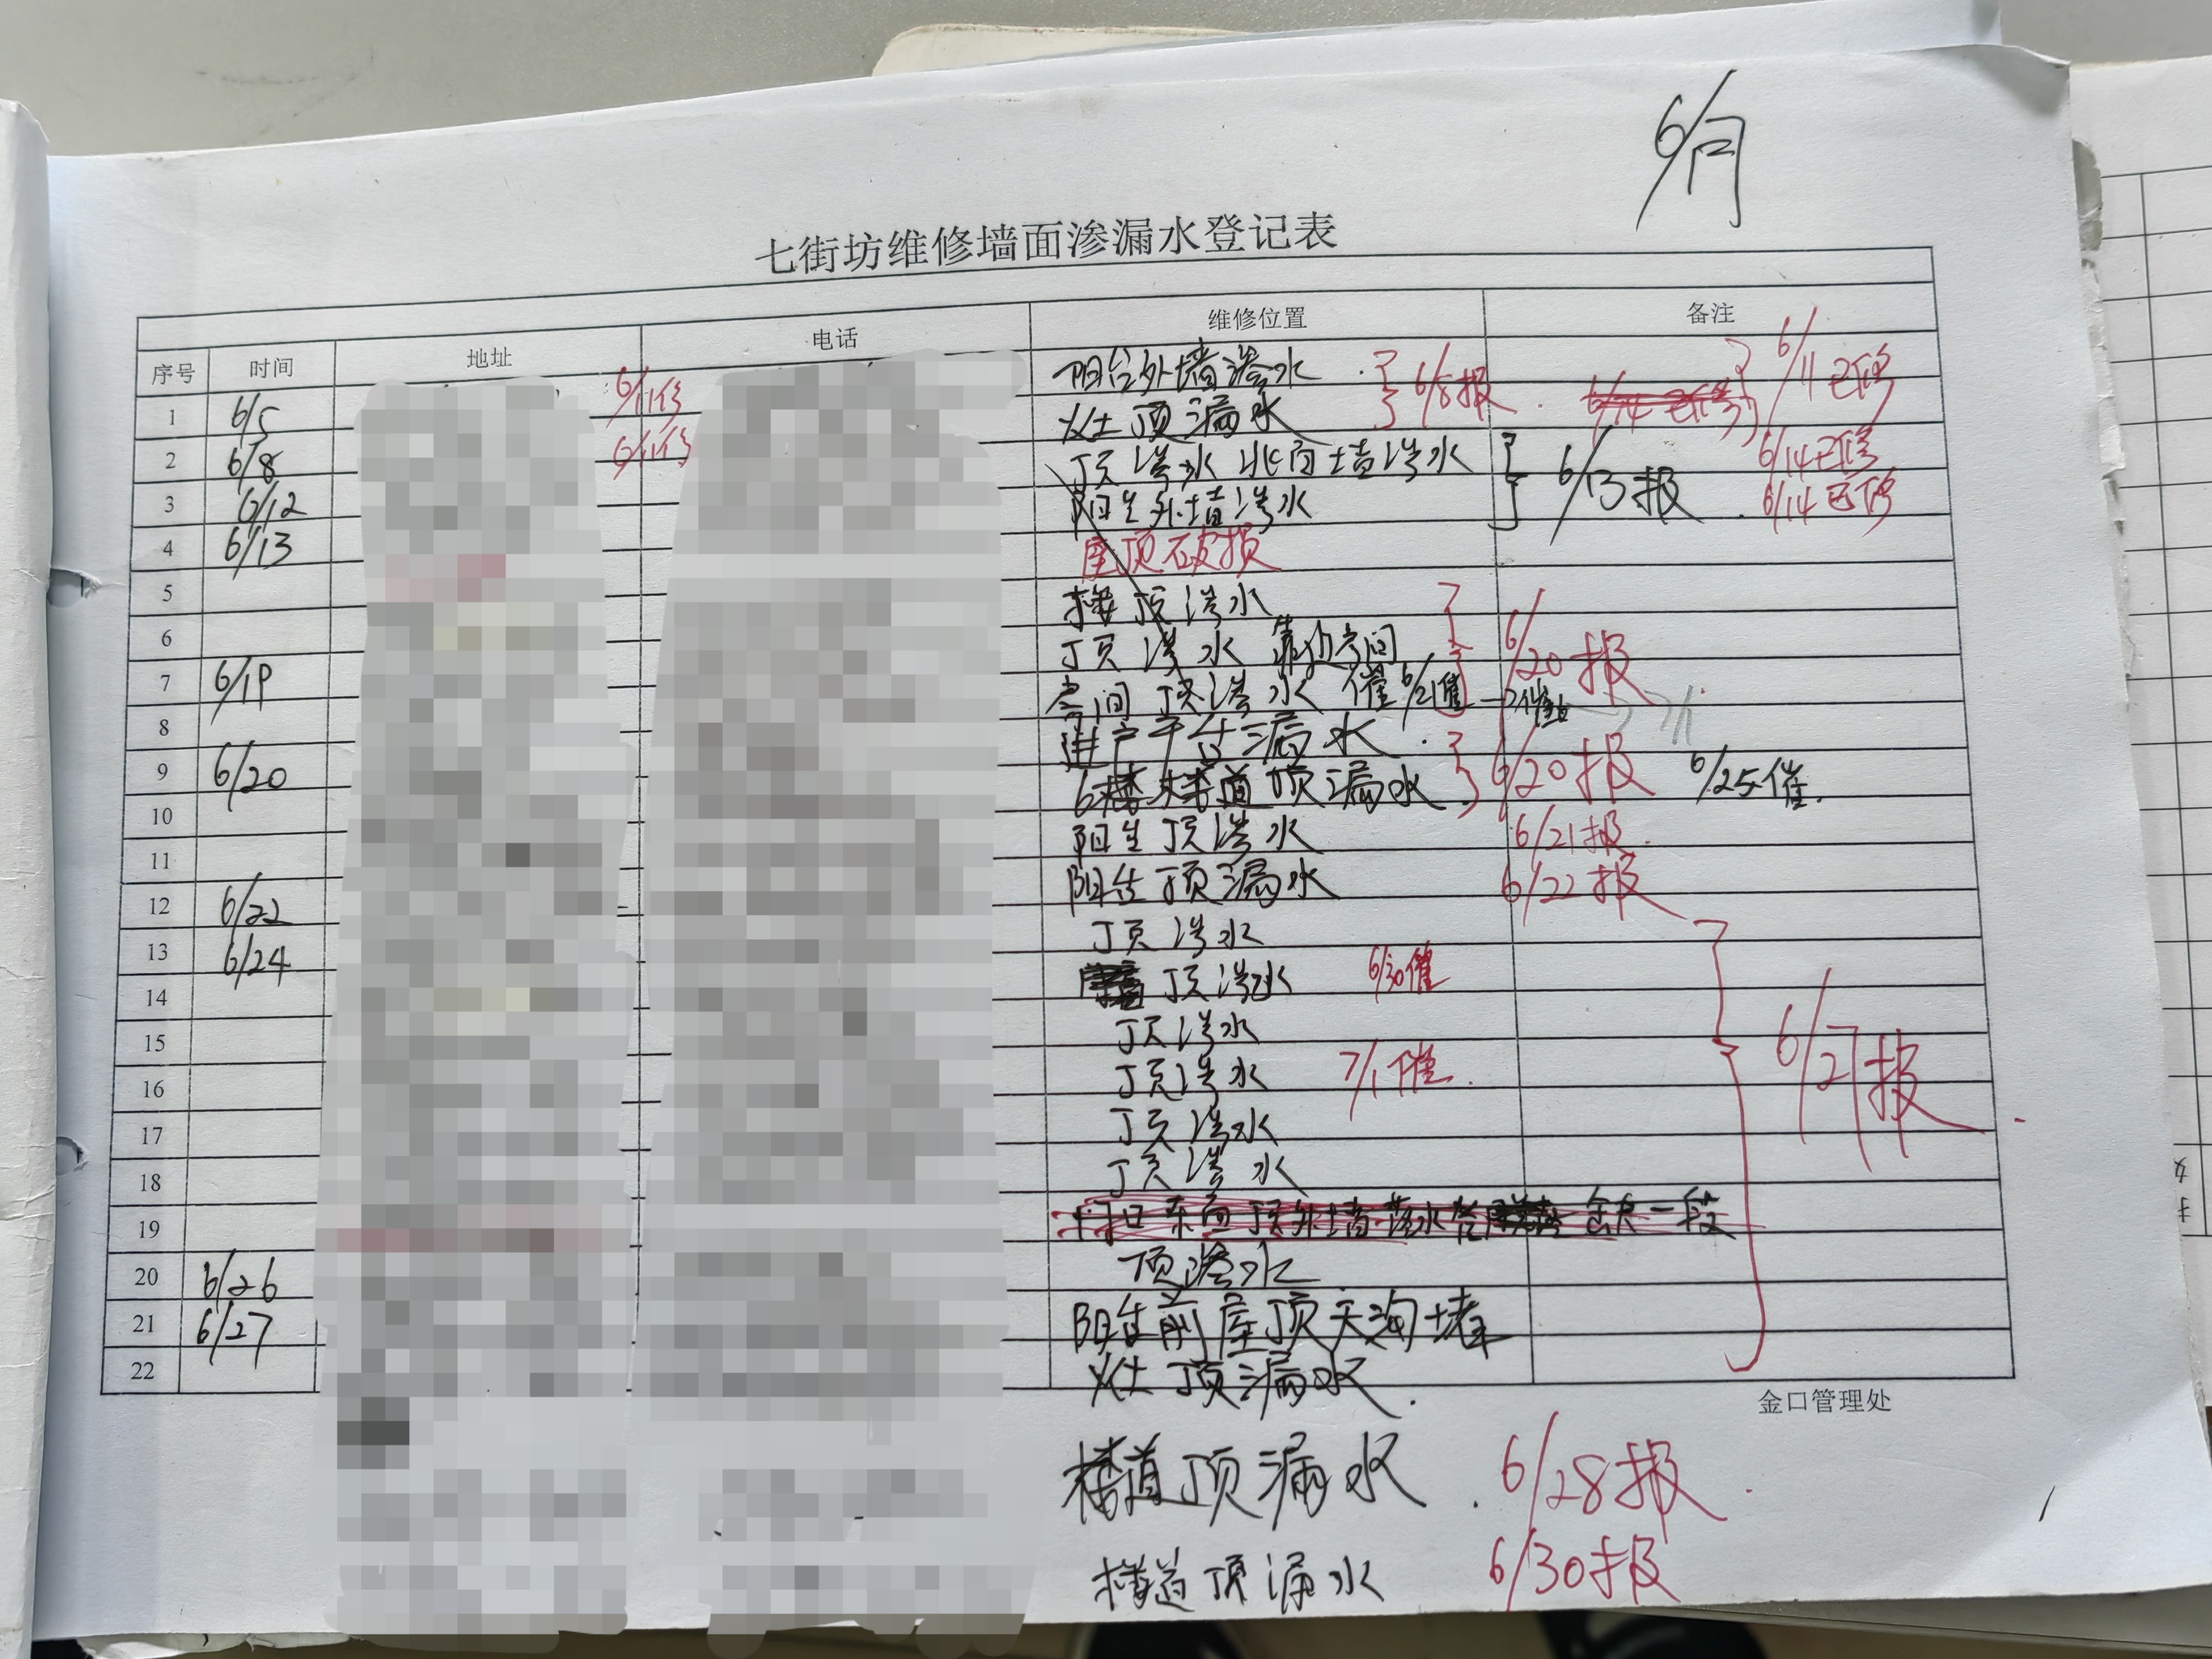 6/月
七街坊维修墙面渗漏水登记表
序号 时间 地址 电话 维修位置 备注
1 6/5 6/11修 阳台外墙渗水 6/8报 6/14已修 6/11已修
2 6/8 6/11修 灶顶漏水
3 6/12 顶渗水 北面墙渗水 6/13报 6/14已修
4 6/13 阳台外墙渗水 6/14已修
5 屋顶破损
6 楼顶渗水 6/20报
7 6/19 顶渗水 靠边房间
8 房间顶渗水 催 6/21催 7/1
9 6/20 进户平台漏水 6/20报 6/25催
10 6楼楼道顶漏水
11 阳台顶渗水 6/21报
12 6/22 阳台顶漏水 6/22报
13 6/24 顶渗水 6/27报
14 顶渗水 6/30催
15 顶渗水
16 顶渗水 7/1催
17 顶渗水
18 顶渗水
19 门口东面顶外墙落水管 缺一段
20 6/26 顶渗水
21 6/27 阳台前屋顶天沟堵
22 灶顶漏水
金口管理处
楼道顶漏水 6/28报
楼道顶漏水 6/30报